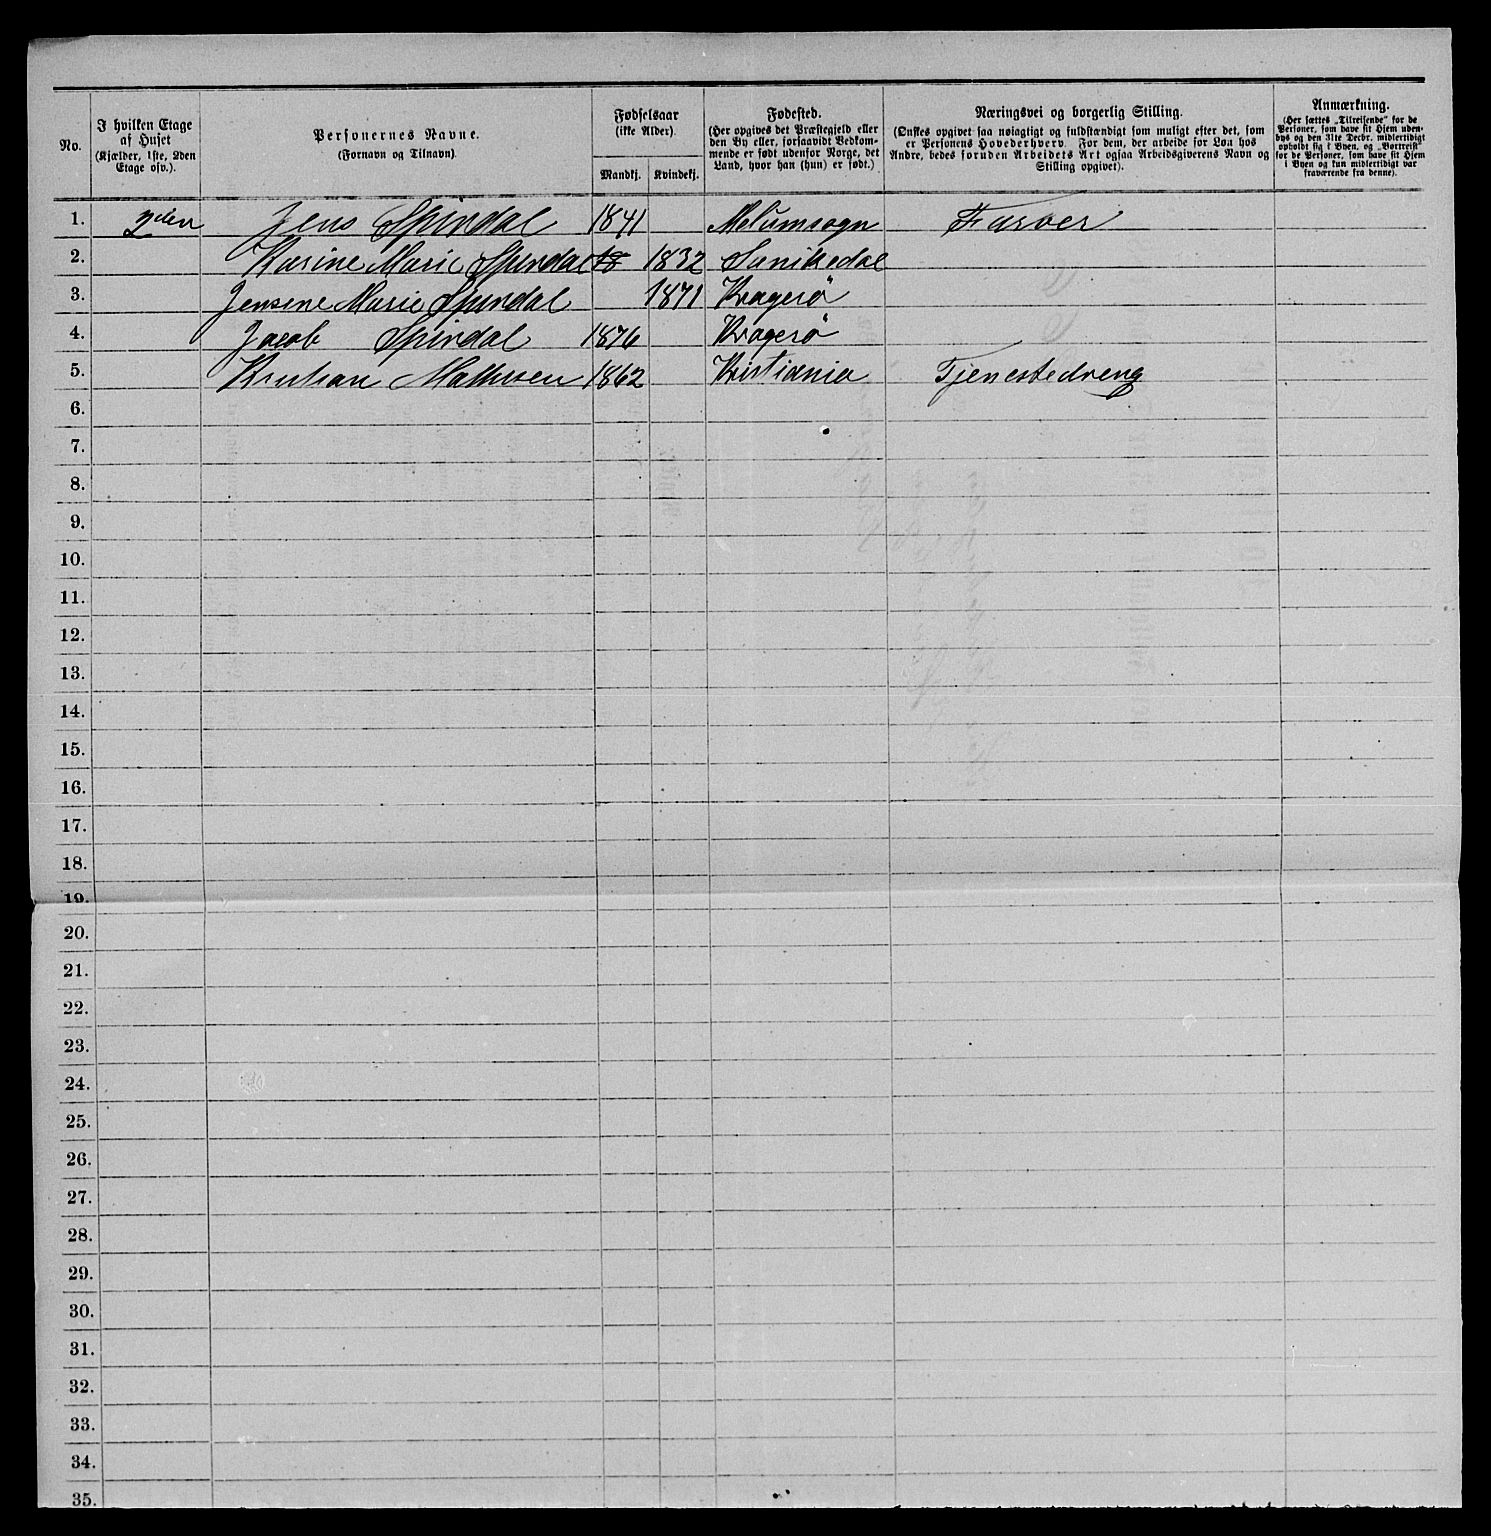 No.
I hvilken Etage af Huset (Kjælder, 1ste, 2den Etage osv.).
Personernes Navne. (Fornavn og Tilnavn)
Fødselsaar (ikke Alder)
Mandkj.
Kvindekj.
Fødested. (Her opgives det Præstegjeld eller den By eller, forsaavidt Vedkommende er født udenfor Norge, det Land, hvor han (hun) er født.)
Næringsvei og borgerlig Stilling. (Ønskes opgivet saa nøiagtigt og fuldstændigt som muligt efter det, som er Personens Hovederhverv. For dem, der arbeide for Løn hos Andre, bedes foruden Arbeidets Art ogsaa Arbeidsgiverens Navn og Stilling opgivet).
Anmærkning. (Her sættes „Tilreisende" for de Personer, som have sit Hjem udenbys og den 31te Decbr. midlertidigt opholdt sig i Byen, og „Bortreist" for de Personer, som have sit Hjem i Byen og kun midlertidigt var fraværende fra denne).
1. 2den Jens Spirdal 1841 Melumsogn Farver
2. Karine Marie Spirdal 18 1832 Sanikedal
3. Jensine Marie Spirdal 1871 Kragerø
4. Jacob Spirdal 1876 Kragerø
5. Kristian Mathisen 1862 Kristiania Tjenestedreng
6.
7.
8.
9.
10.
11.
12.
13.
14.
15.
16.
17.
18.
19.
20.
21.
22.
23.
24.
25.
26.
27.
28.
29.
30.
31.
32.
33.
34.
35.